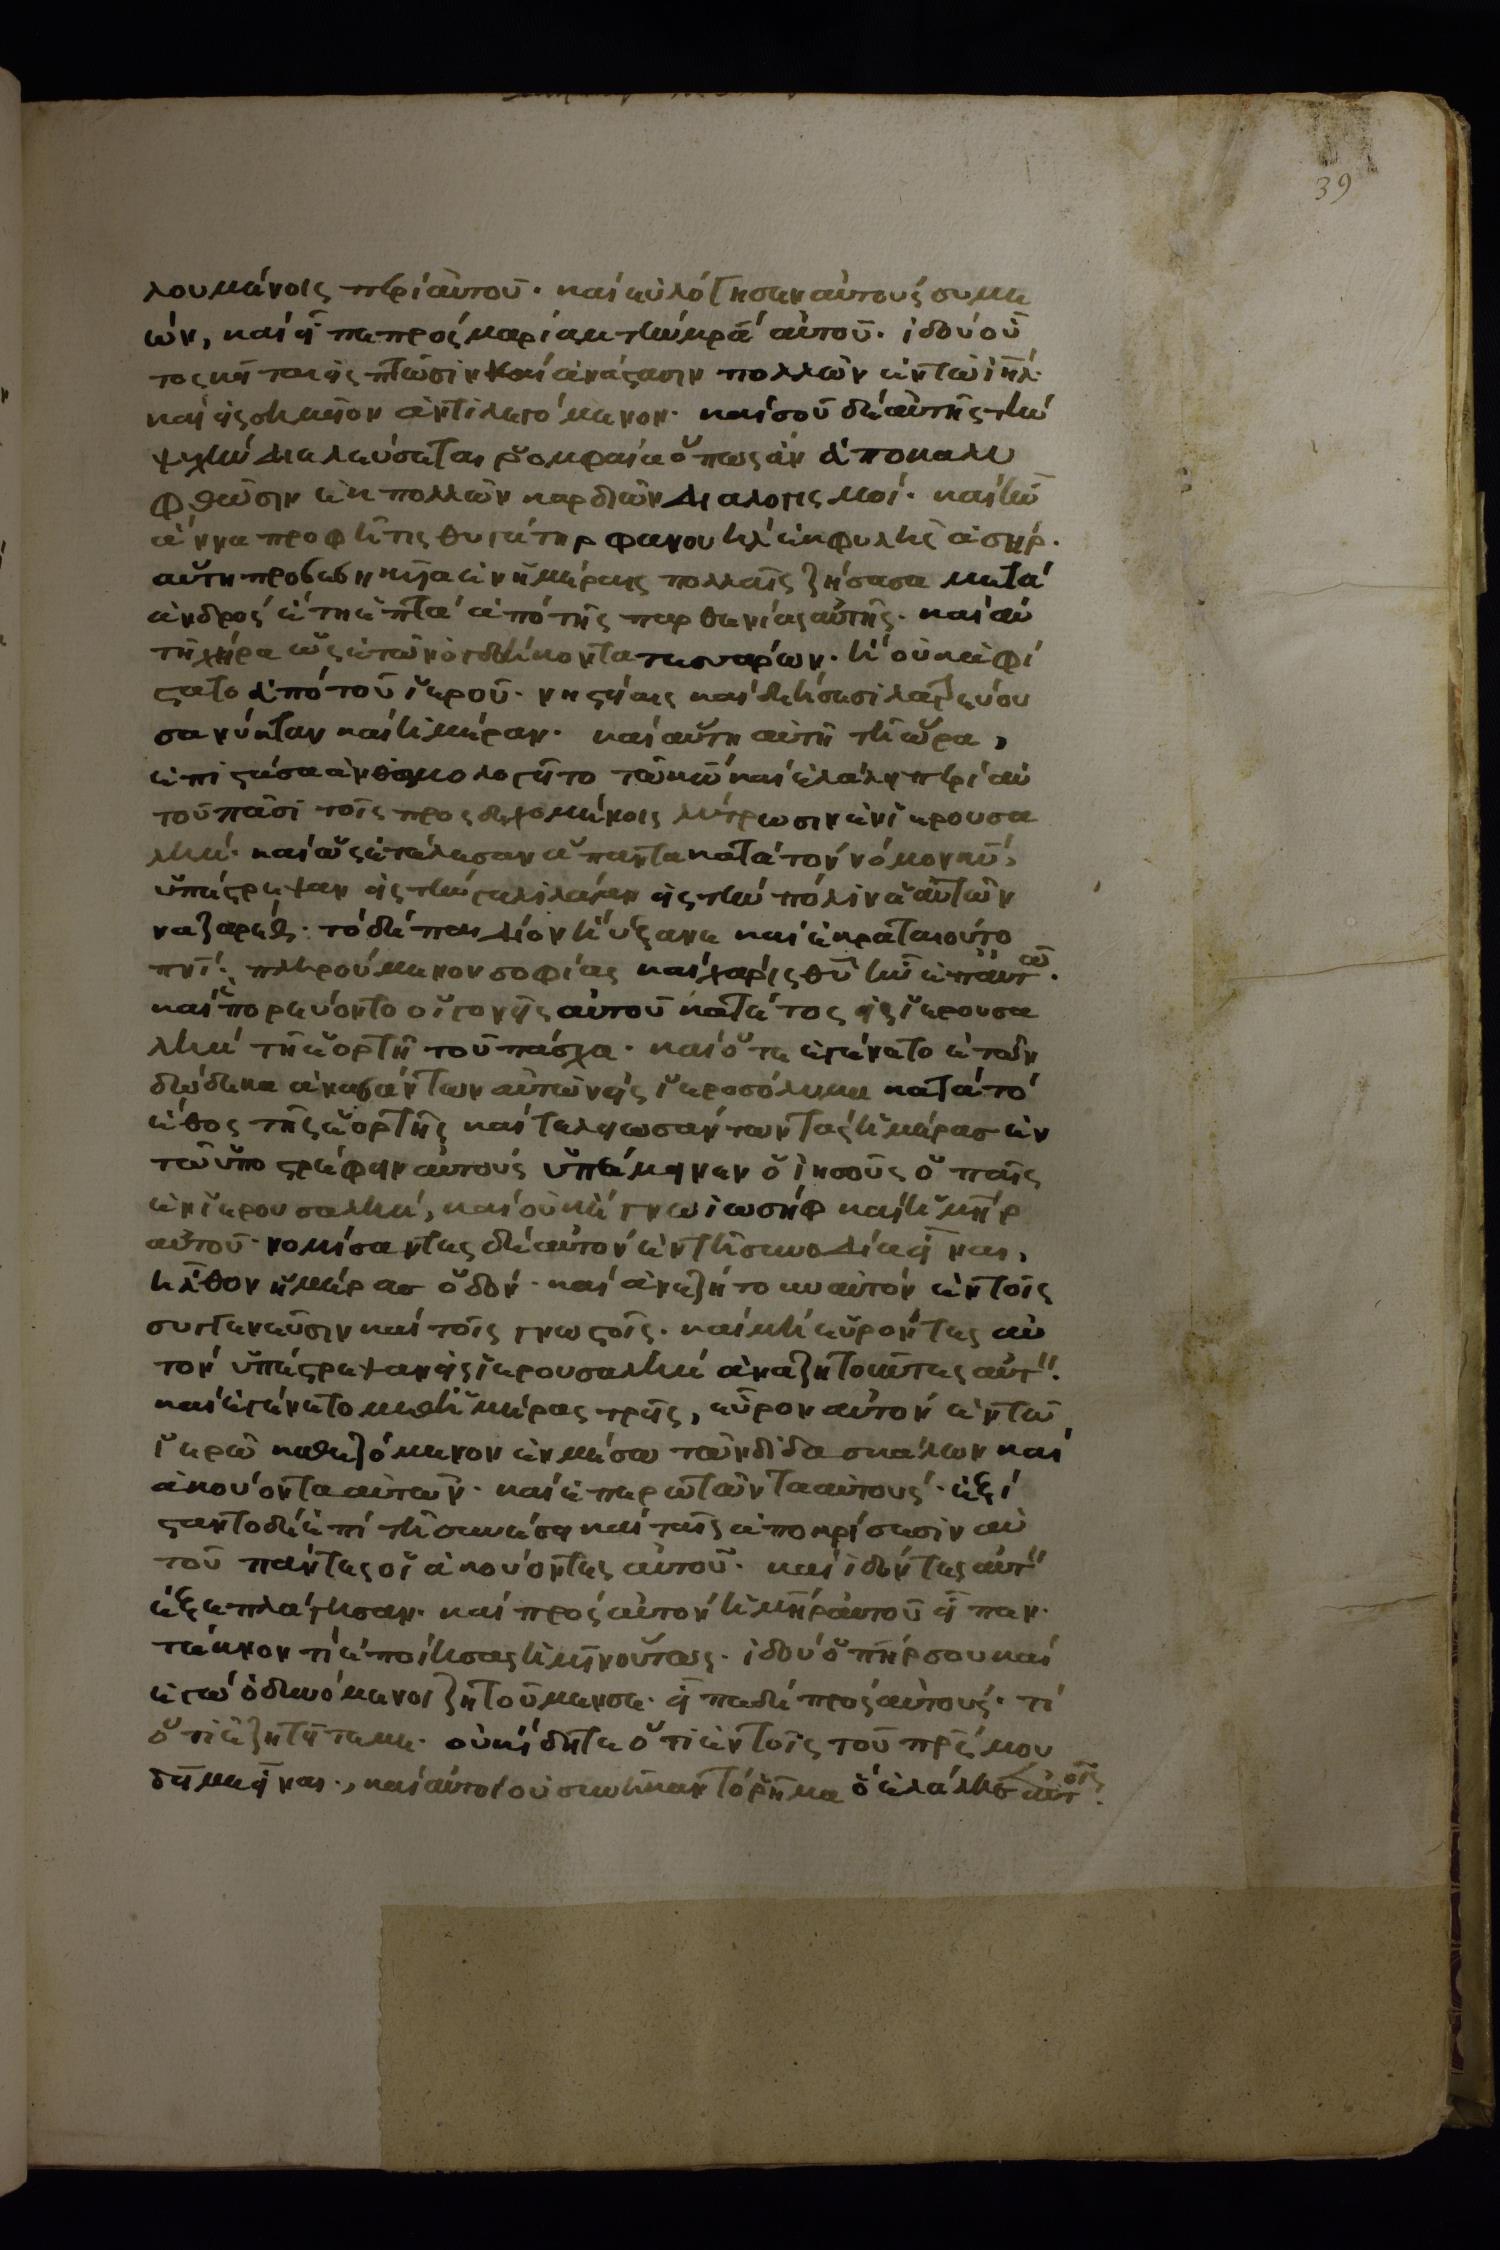 39
λουμένοις περὶ αὐτοῦ. καὶ εὐλόγησεν αὐτοὺς συμε
ὼν, καὶ εἶπε πρὸς μαριὰμ τὴν μρ̅α αὐτοῦ. ἰδοὺ οὗ
τος κεῖται εἰς πτῶσιν καὶ ἀνάστασιν πολλῶν ἐν τῶ ιη̅λ.
καὶ εἰς σημεῖον ἀντιλεγόμενον. καὶ σοῦ δὲ αὐτῆς τὴν
ψυχὴν διελεύσεται ῥομφαία ὅπως ἂν ἀποκαλυ
φθῶσιν ἐκ πολλῶν καρδιῶν διαλογισμοί. καὶ ἦν
ἄννα προφῆτις θυγάτηρ φανουὴλ ἐκ φυλῆς ἀσήρ.
αὕτη προβεβηκυῖα ἐν ἡμέραις πολλαῖς ζήσασα μετὰ
ἀνδρὸς ἔτη ἑπτὰ ἀπὸ τῆς παρθενίας αὐτῆς. καὶ αὐ
τῆ χήρα ὡς ἐτῶν ὀγδοήκοντα τεσσάρων. ἣ οὐκ ἀφί
στατο ἀπὸ τοῦ ἱεροῦ. νηστείαις καὶ δεήσεσι λατρεύου
σα νύκταν καὶ ἡμέραν. καὶ αὕτη αὐτῆ τῆ ὥρα,
ἐπιστᾶσα ἀνθομολογεῖτο τῶ κω̅ καὶ ἐλάλει περὶ αὐ
τοῦ πᾶσι τοῖς προςδεχομένοις λύτρωσιν ἐν ἱερουσα
λήμ. καὶ ὡς ἐτέλεσαν ἅπαντα κατὰ τὸν νόμον κυ̅,
ὑπέστρεψαν εἰς τὴν γαλιλαίαν εἰς τὴν πόλιν ἑαυτῶν
ναζαρέθ. τὸ δὲ παιδίον ηὔξανε καὶ ἐκραταιοῦτο
πνι̅. πληρούμενον σοφίας καὶ χάρις θυ̅ ἦν ἐπ' αὐτῶ.
καὶ ἐπορεύοντο οἱ γονεῖς αὐτοῦ κατέτος εἰς ἱερουσα
λὴμ τῆ ἑορτῆ τοῦ πάσχα. καὶ ὅτε ἐγένετο ἐτῶν
δώδεκα ἀναβάντων αὐτῶν εἰς ἱεροσόλυμα κατὰ τὸ
ἔθος τῆς ἑορτῆς καὶ τελειωσάντων τὰς ἡμέρας ἐν
τῶ ὑποστρέφειν αὐτοὺς ὑπέμεινεν ὁ ἰησοῦς ὁ παῖς
ἐν ἱερουσαλὴμ, καὶ οὐκ ἔγνω ἰωσὴφ καὶ ἡ μη̅ρ
αὐτοῦ. νομίσαντες δὲ αὐτὸν ἐν τῆ συνοδία εἶναι,
ἦλθον ἡμέρας ὁδόν. καὶ ἀνεζήτουν αὐτὸν ἐν τοῖς
συγγενεῦσιν καὶ τοῖς γνωστοῖς. καὶ μὴ εὑρόντες αὐ
τὸν ὑπέστρεψαν εἰς ἱερουσαλὴμ ἀναζητοῦντες αὐτ.
καὶ ἐγένετο μεθ' ἡμέρας τρεῖς, εὗρον αὐτὸν ἐν τῶ
ἱερῶ καθεζόμενον ἐν μέσω τῶν διδασκάλων καὶ
ἀκούοντα αὐτῶν. καὶ ἐπερωτῶντα αὐτούς. ἐξί
σταντο δὲ ἐπὶ τῆ συνέσει καὶ ταῖς ἀποκρίσεσιν αὐ
τοῦ πάντες οἱ ἀκούοντες αὐτοῦ. καὶ ἰδόντες αὐτ
ἐξεπλάγησαν. καὶ πρὸς αὐτὸν ἡ μη̅ρ αὐτοῦ εἶπεν.
τέκνον τί ἐποίησας ἡμῖν οὕτως. ἰδοὺ ὁ πη̅ρ σου καὶ
ἐγὼ ὀδυνόμενοι ζητοῦμεν σε. εἶπε δὲ πρὸς αὐτούς. τί
ὅτι ἐζητεῖτέ με. οὐκ ἤδειτε ὅτι ἐν τοῖς τοῦ πρ̅ς μου
δεῖ με εἶναι., καὶ αὐτοὶ οὐ συνῆκαν τὸ ῥῆμα ὃ ἐλάλησεν αὐτοῖς.